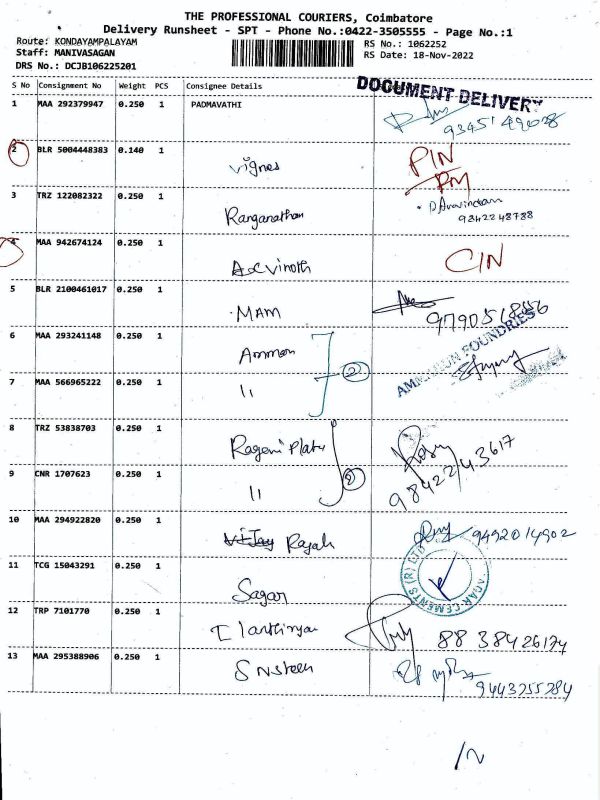 THE PROFESSIONAL COURIERS, Coimbatore
Delivery Runsheet - SPT - Phone No.:0422-3505555 - Page No.:1
Route: KONDAYAMPALAYAM
Staff: MANIVASAGAN
DRS No.: DCJB106225201
RS No.: 1062252
RS Date: 18-Nov-2022
DOCUMENT DELIVERY
S No Consignment No Weight PCS Consignee Details
1 MAA 292379947 0.250 1 PADMAVATHI
2 BLR 5004448383 0.140 1 Vignes PIN
3 TRZ 122082322 0.250 1 Ranganathan D Aravindan
9842248788
4 MAA 942674124 0.250 1 Vinoth CIN
5 BLR 2100461017 0.250 1 MAM
6 MAA 293241148 0.250 1 Ammon 2 FOUNDRIES
7 MAA 566965222 0.250 1 11
8 TRZ 53838703 0.250 1 Rageni Plate 2
9 CNR 1707623 0.250 1 11 98422/43617
10 MAA 294922820 0.250 1 Vijay Rajah 9492014902
11 TCG 15043291 0.250 1 Sagar CEMENTS (R) LTD
12 TRP 7101770 0.250 1 8838426174
13 MAA 295388906 0.250 1 S N Steen 9443255284
12